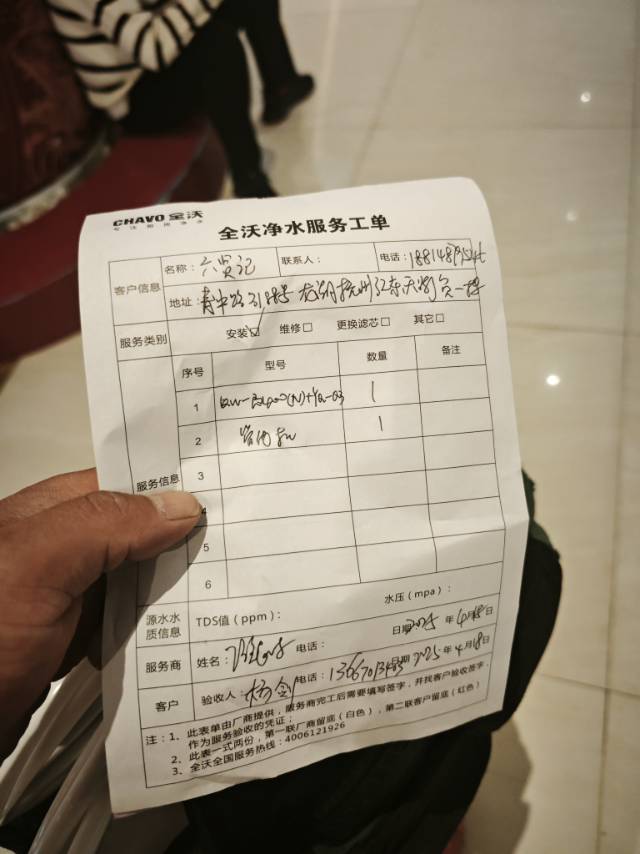 CHAVO 全沃
专注厨房净水
全沃净水服务工单
客户信息
名称: 六贤记
联系人:
电话:
地址:
服务类别
安装☑ 维修□ 更换滤芯□ 其它□
服务信息
序号 型号 数量 备注
1 1
2 1
3
4
5
6
源水水质信息
TDS值(ppm): 水压(mpa):
服务商
姓名: 电话: 日期 2025 年 4月18日
客户
验收人: 杨剑 电话: 日期 2025 年 4月18日
注:1、此表单由厂商提供,服务商完工后需要填写签字,并找客户验收签字,
作为服务验收的凭证;
2、此表一式两份,第一联厂商留底(白色),第二联客户留底(红色)
3、全沃全国服务热线:4006121926